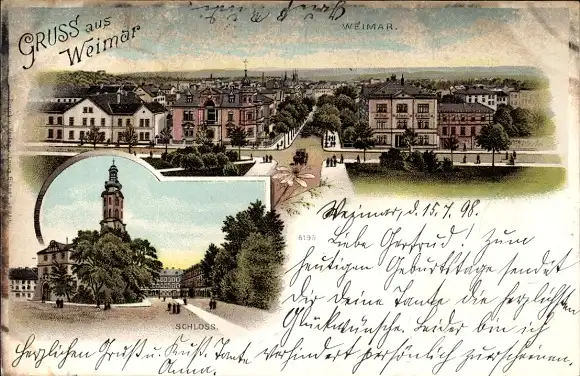 GRUSS aus
Weimar
WEIMAR.
SCHLOSS.
Weimar, d. 15.7.98.
Liebe Gertrud! Zum
heutigen Geburtstage sendet
Dir deine Tante die herzlichsten
Glückwünsche. Leider bin ich
verhindert persönlich zu erscheinen.
Herzlichen Gruß u. Kuß. Tante
Anna.